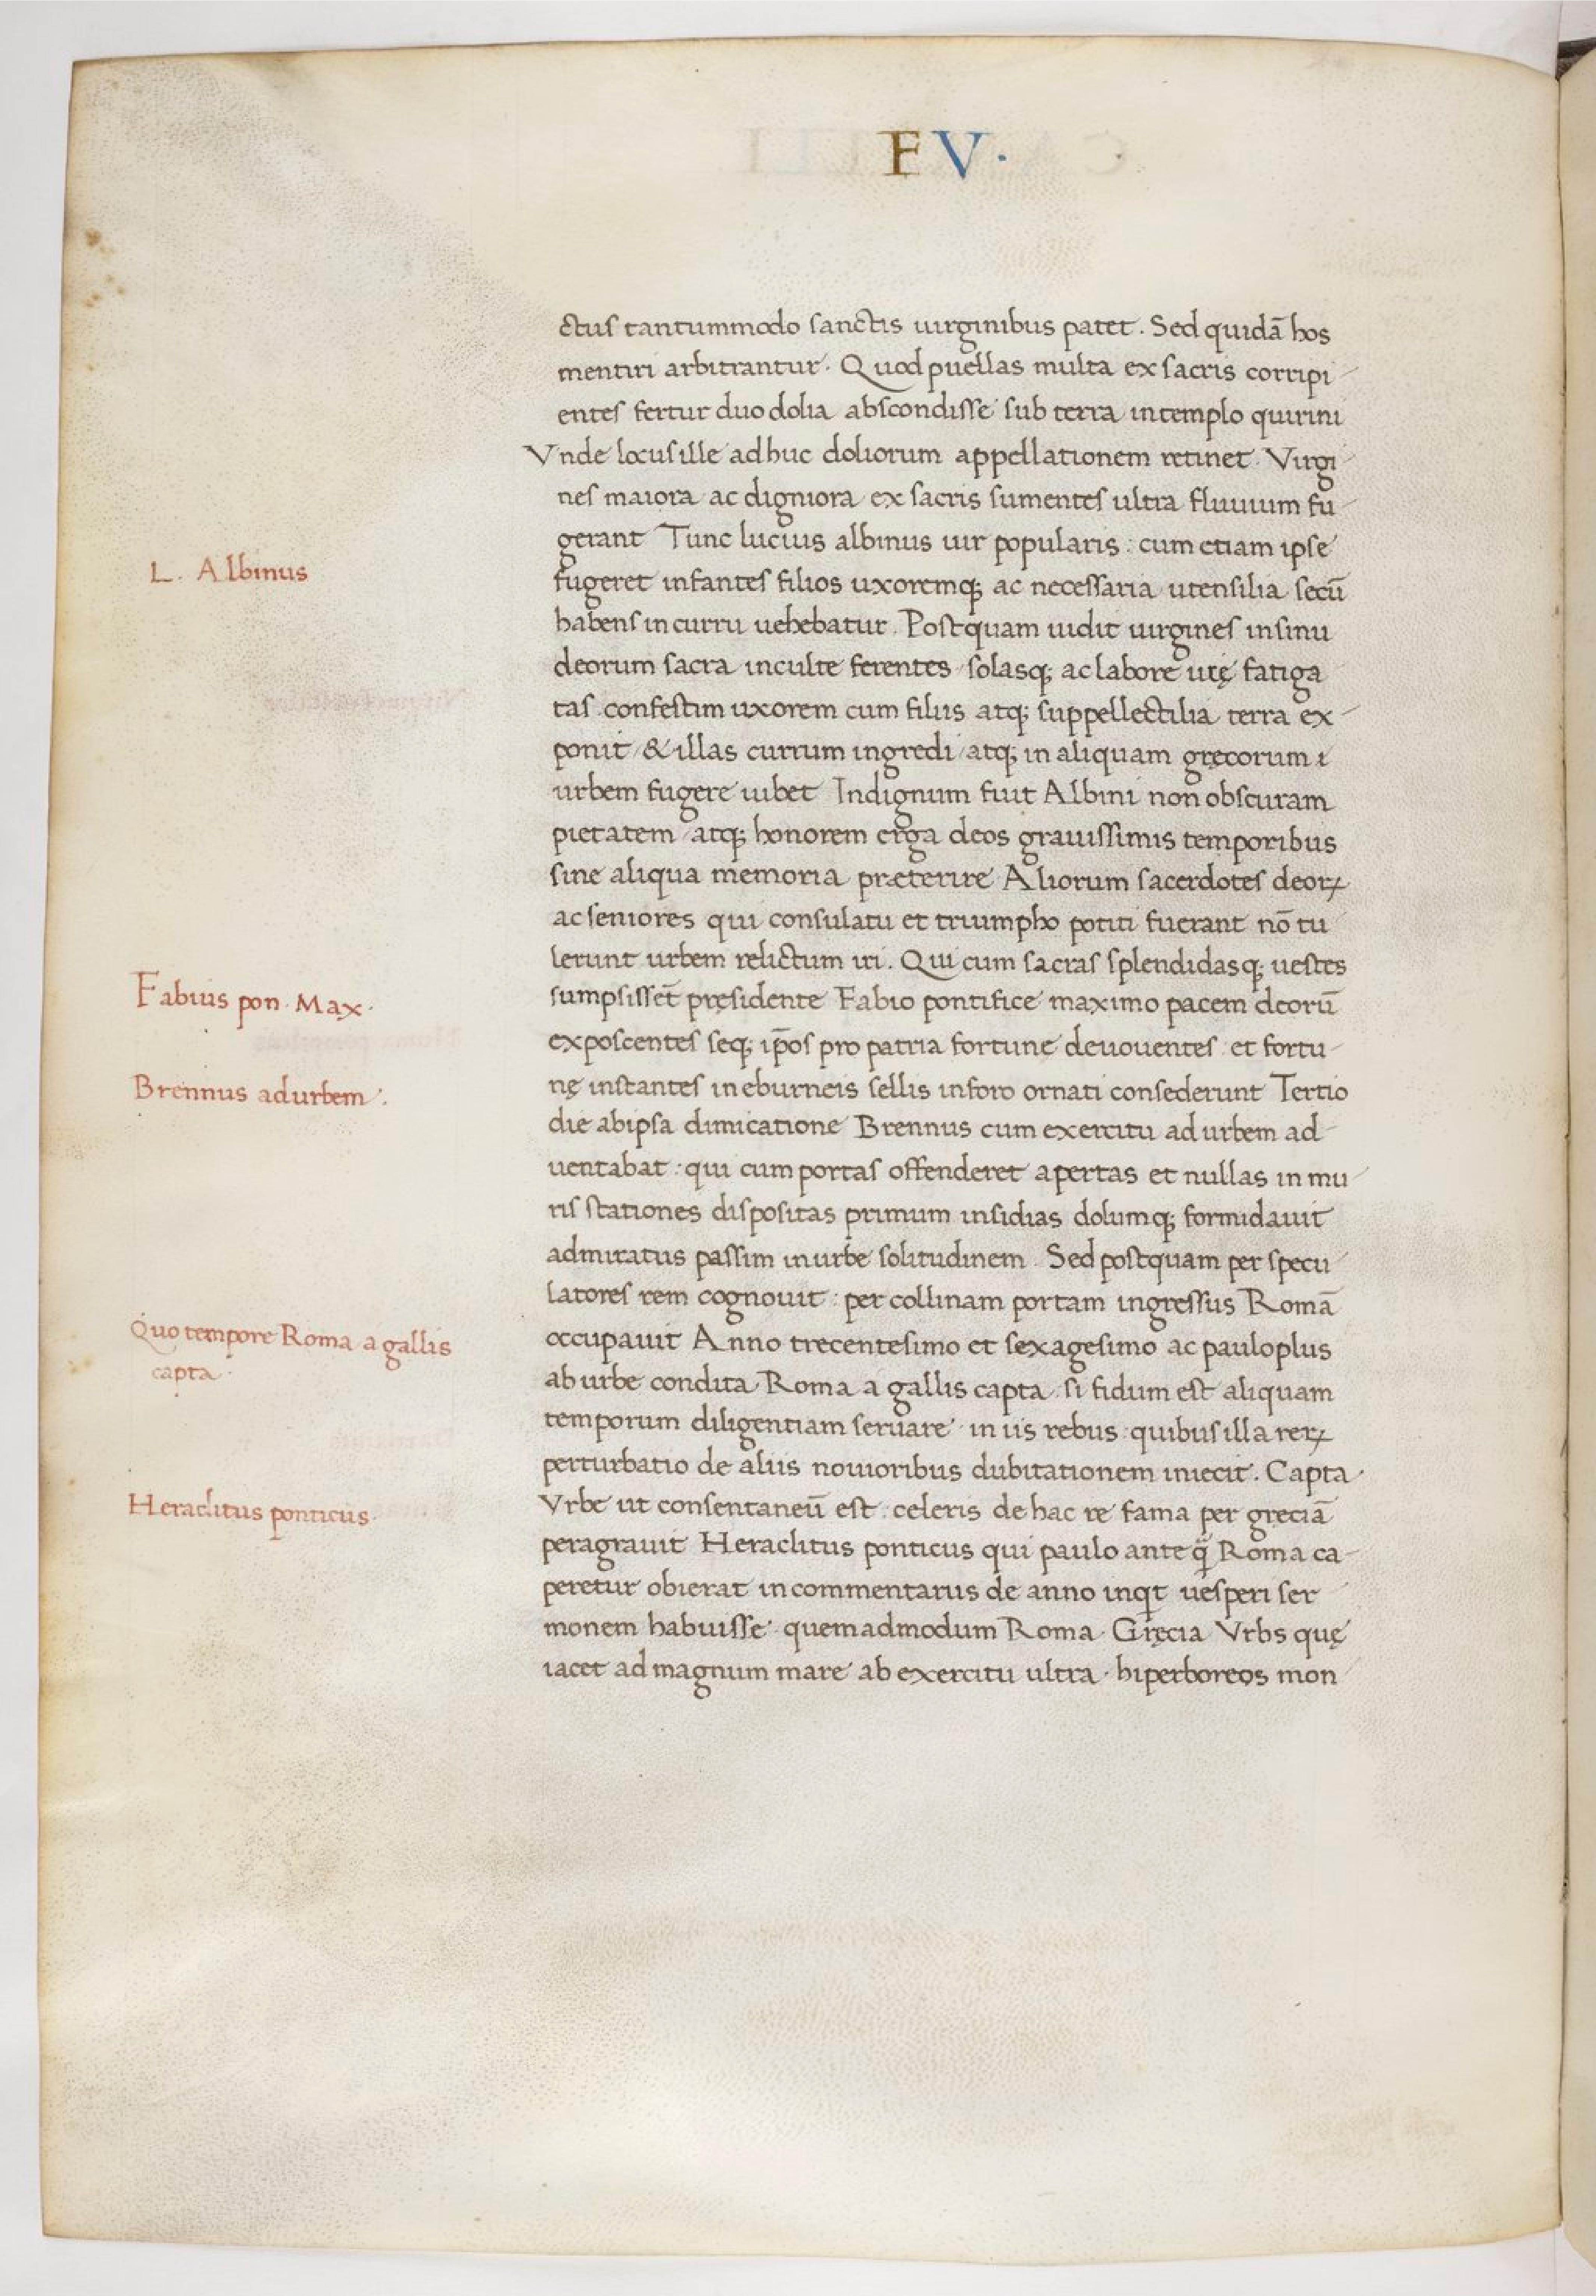 FV·
ctus tantummodo sanctis uirginibus patet. Sed quidā hos
mentiri arbitrantur. Quod puellas multa ex sacris corripi
entes fertur duo dolia abscondisse sub terra in templo quirini
Vnde locus ille ad huc doliorum appellationem retinet. Virgi
nes maiora ac digniora ex sacris sumentes ultra fluuium fu
gerant Tunc lucius albinus uir popularis: cum etiam ipse
L. Albinus
fugeret infantes filios uxoremq; ac necessaria utensilia secū
habens in curru uehebatur. Postquam uidit uirgines in sinu
deorum sacra inculte ferentes solasq; ac labore uię fatiga
tas confestim uxorem cum filiis atq; suppellectilia terra ex
ponit & illas currum ingredi atq; in aliquam gręcorum
urbem fugere iubet Indignum fuit Albini non obscuram
pietatem atq; honorem erga deos grauissimis temporibus
sine aliqua memoria præterire Aliorum sacerdotes deoꝝ
ac seniores qui consulatu et triumpho potiti fuerant nō tu
lerunt urbem relictum iri. Qui cum sacras splendidasq; uestes
Fabius pon. Max.
sumpsissēt pręsidente Fabio pontifice maximo pacem deorū
exposcentes seq; ip̄os pro patria fortune deuouentes et fortu
Brennus ad urbem.
nę instantes in eburneis sellis in foro ornati consederunt Tertio
die ab ipsa dimicatione Brennus cum exercitu ad urbem ad
uentabat: qui cum portas offenderet apertas et nullas in mu
ris stationes dispositas primum insidias dolumq; formidauit
admiratus passim in urbe solitudinem. Sed postquam per specu
latores rem cognouit: per collinam portam ingressus Romā
Quo tempore Roma a gallis
capta
occupauit Anno trecentesimo et sexagesimo ac paulo plus
ab urbe condita Roma a gallis capta si fidum est aliquam
temporum diligentiam seruare in iis rebus: quibus illa reꝝ
perturbatio de aliis nouioribus dubitationem iniecit. Capta
Heraclitus ponticus
Vrbe ut consentaneū est: celeris de hac re fama per gręciā
peragrauit Heraclitus ponticus qui paulo ante q̄ Roma ca
peretur obierat in commentariis de anno inqt uesperi ser
monem habuisse quemadmodum Roma Gręcia Vrbs quę
iacet ad magnum mare ab exercitu ultra hiperboreos mon